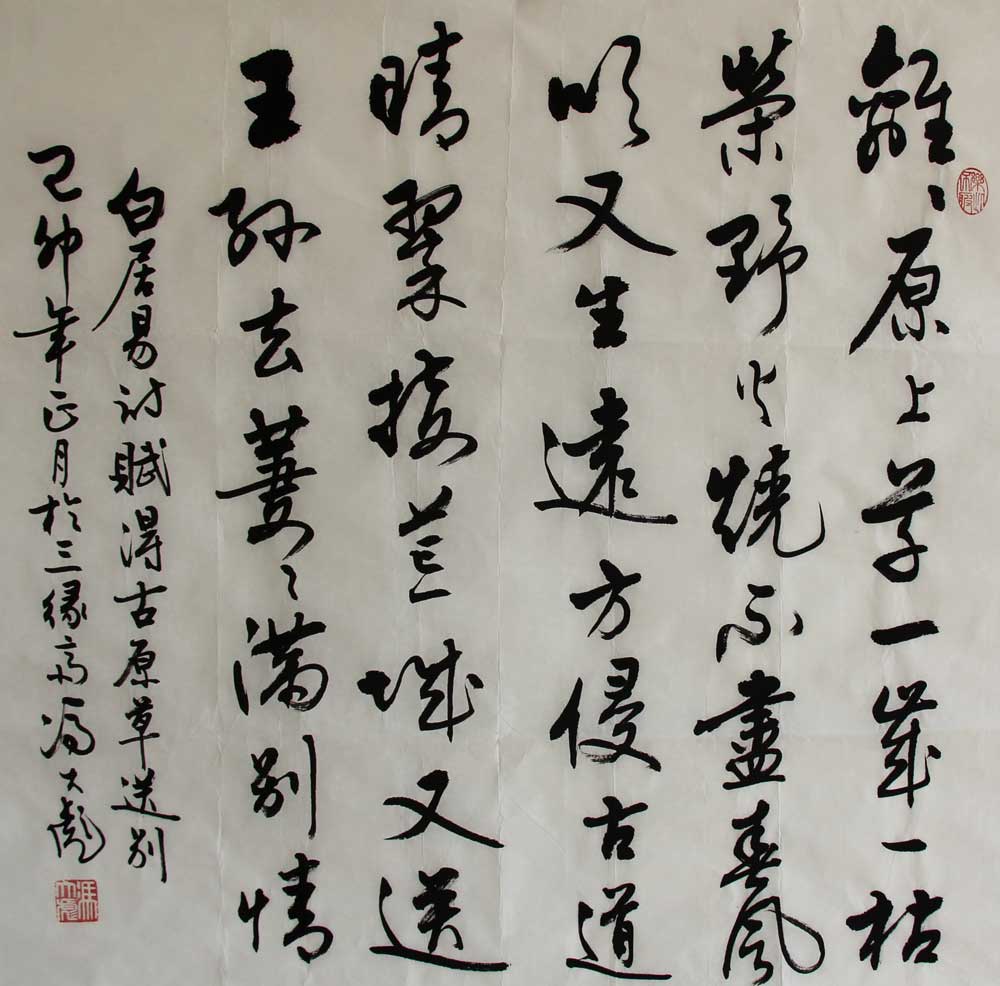 離〻原上草一歲一枯
榮野火燒不盡春風
吹又生遠方侵古道
晴翠接荒城又送
王孫去萋〻滿別情
白居易詩賦得古原草送別
己卯年正月於三緣齋馮大彪